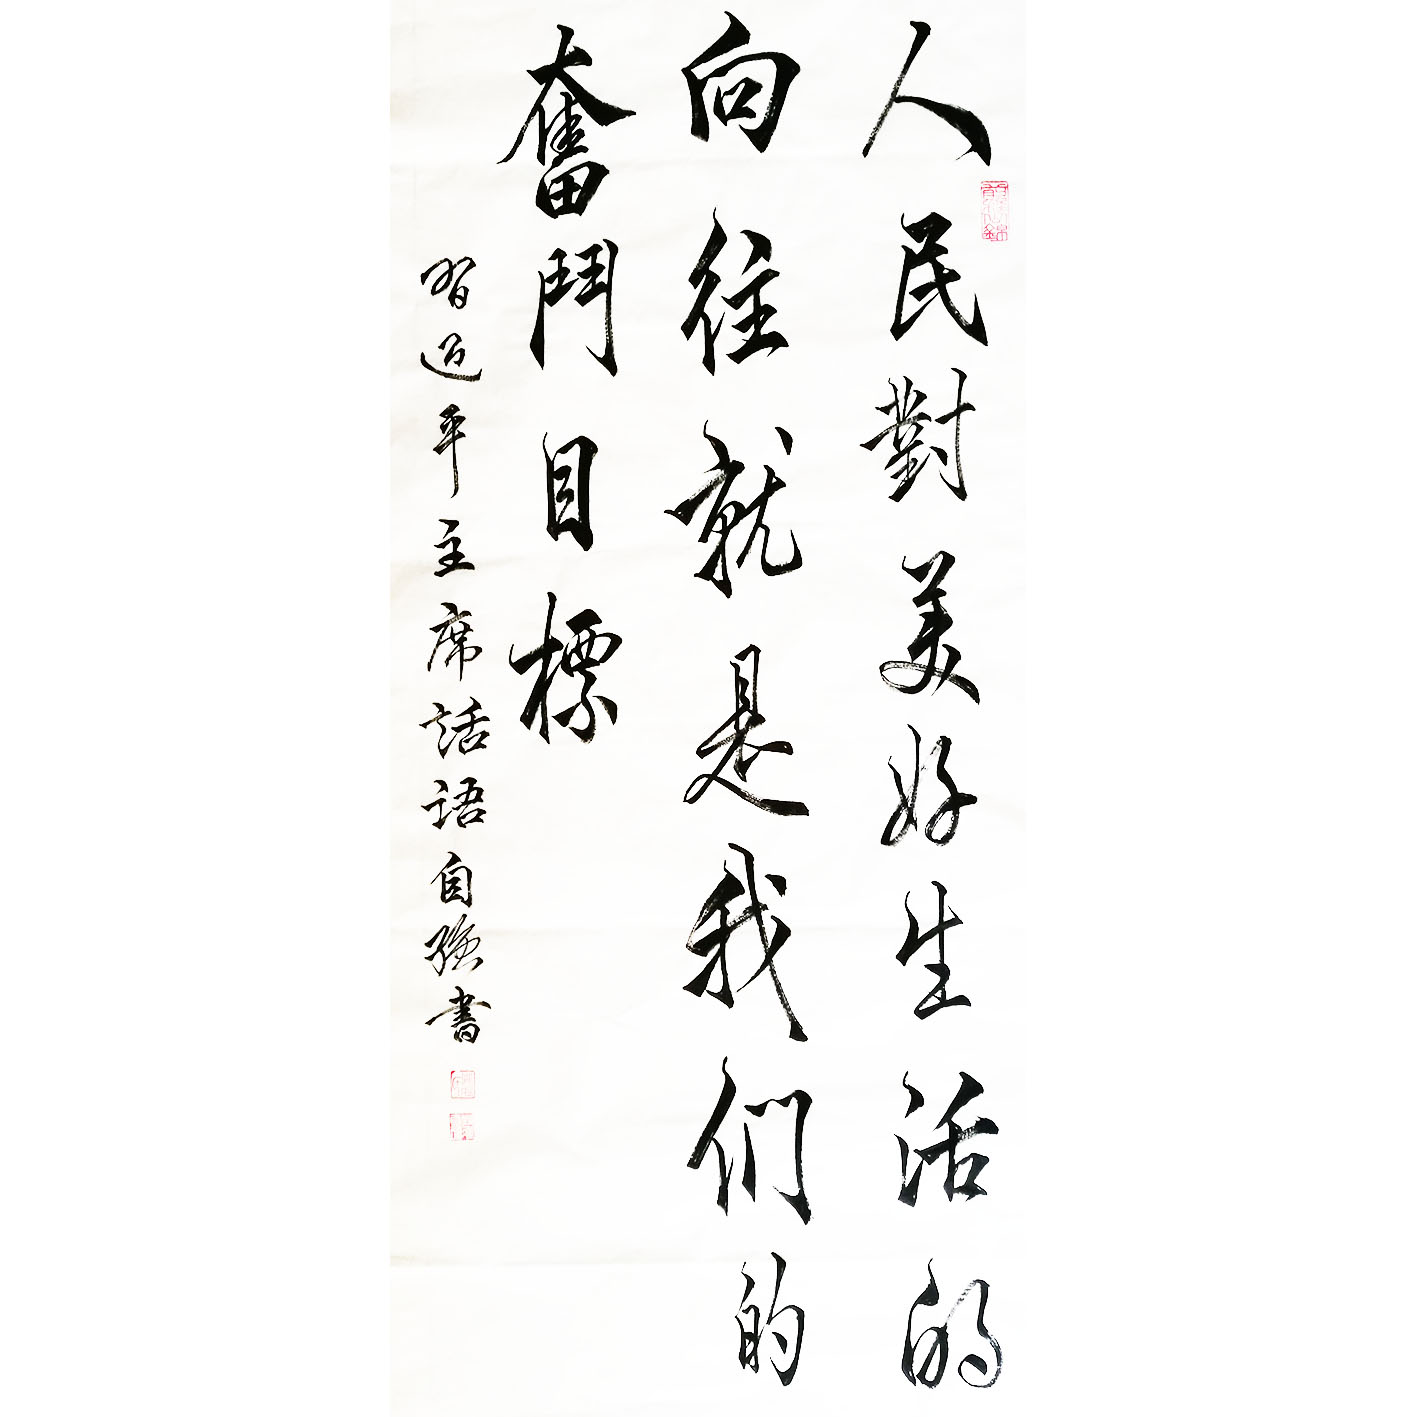 人民對美好生活的
向往就是我们的
奮鬥目標
習近平主席話語自強書